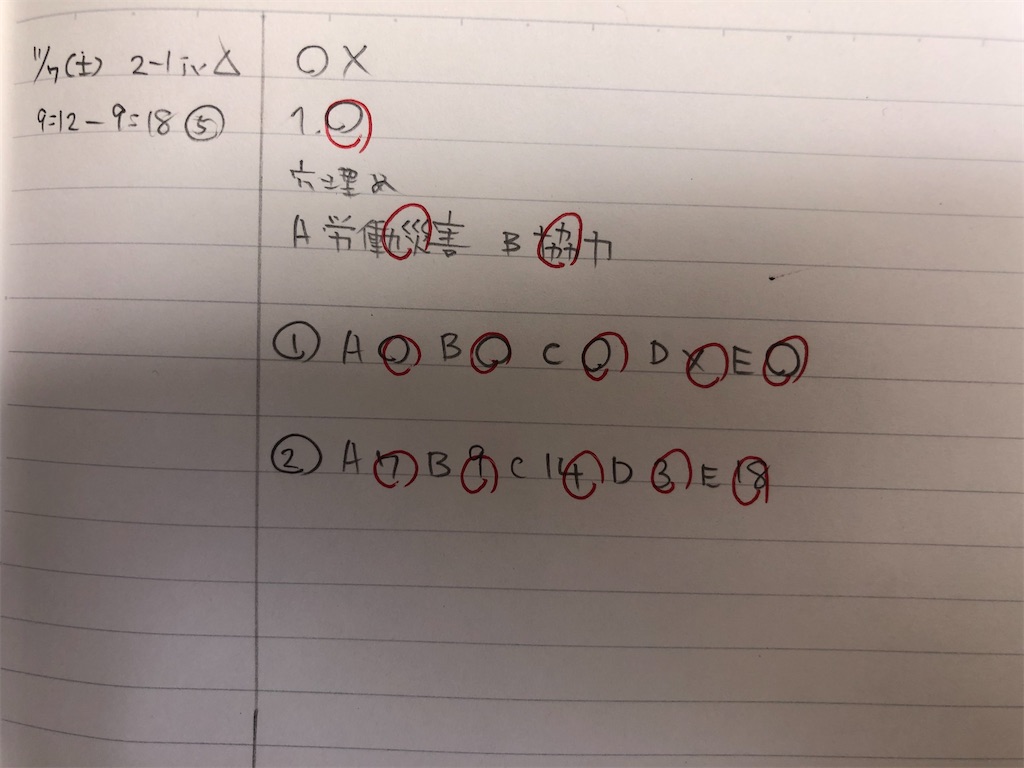 11/7(土) 2-1 iv △
9:12 - 9:18 ⑤
○×
1. ○
穴埋め
A 労働災害 B 協力
① A ○ B ○ C ○ D × E ○
② A 17 B 9 C 14 D 3 E 18